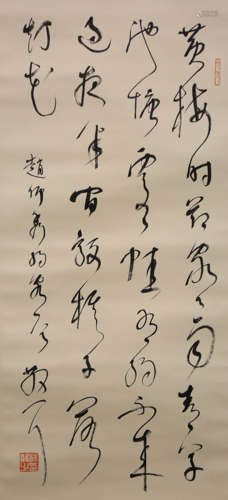 黄梅时节家々雨青草
池塘处々蛙有约不来
过夜半闲敲棋子落
灯花
趙师秀约客